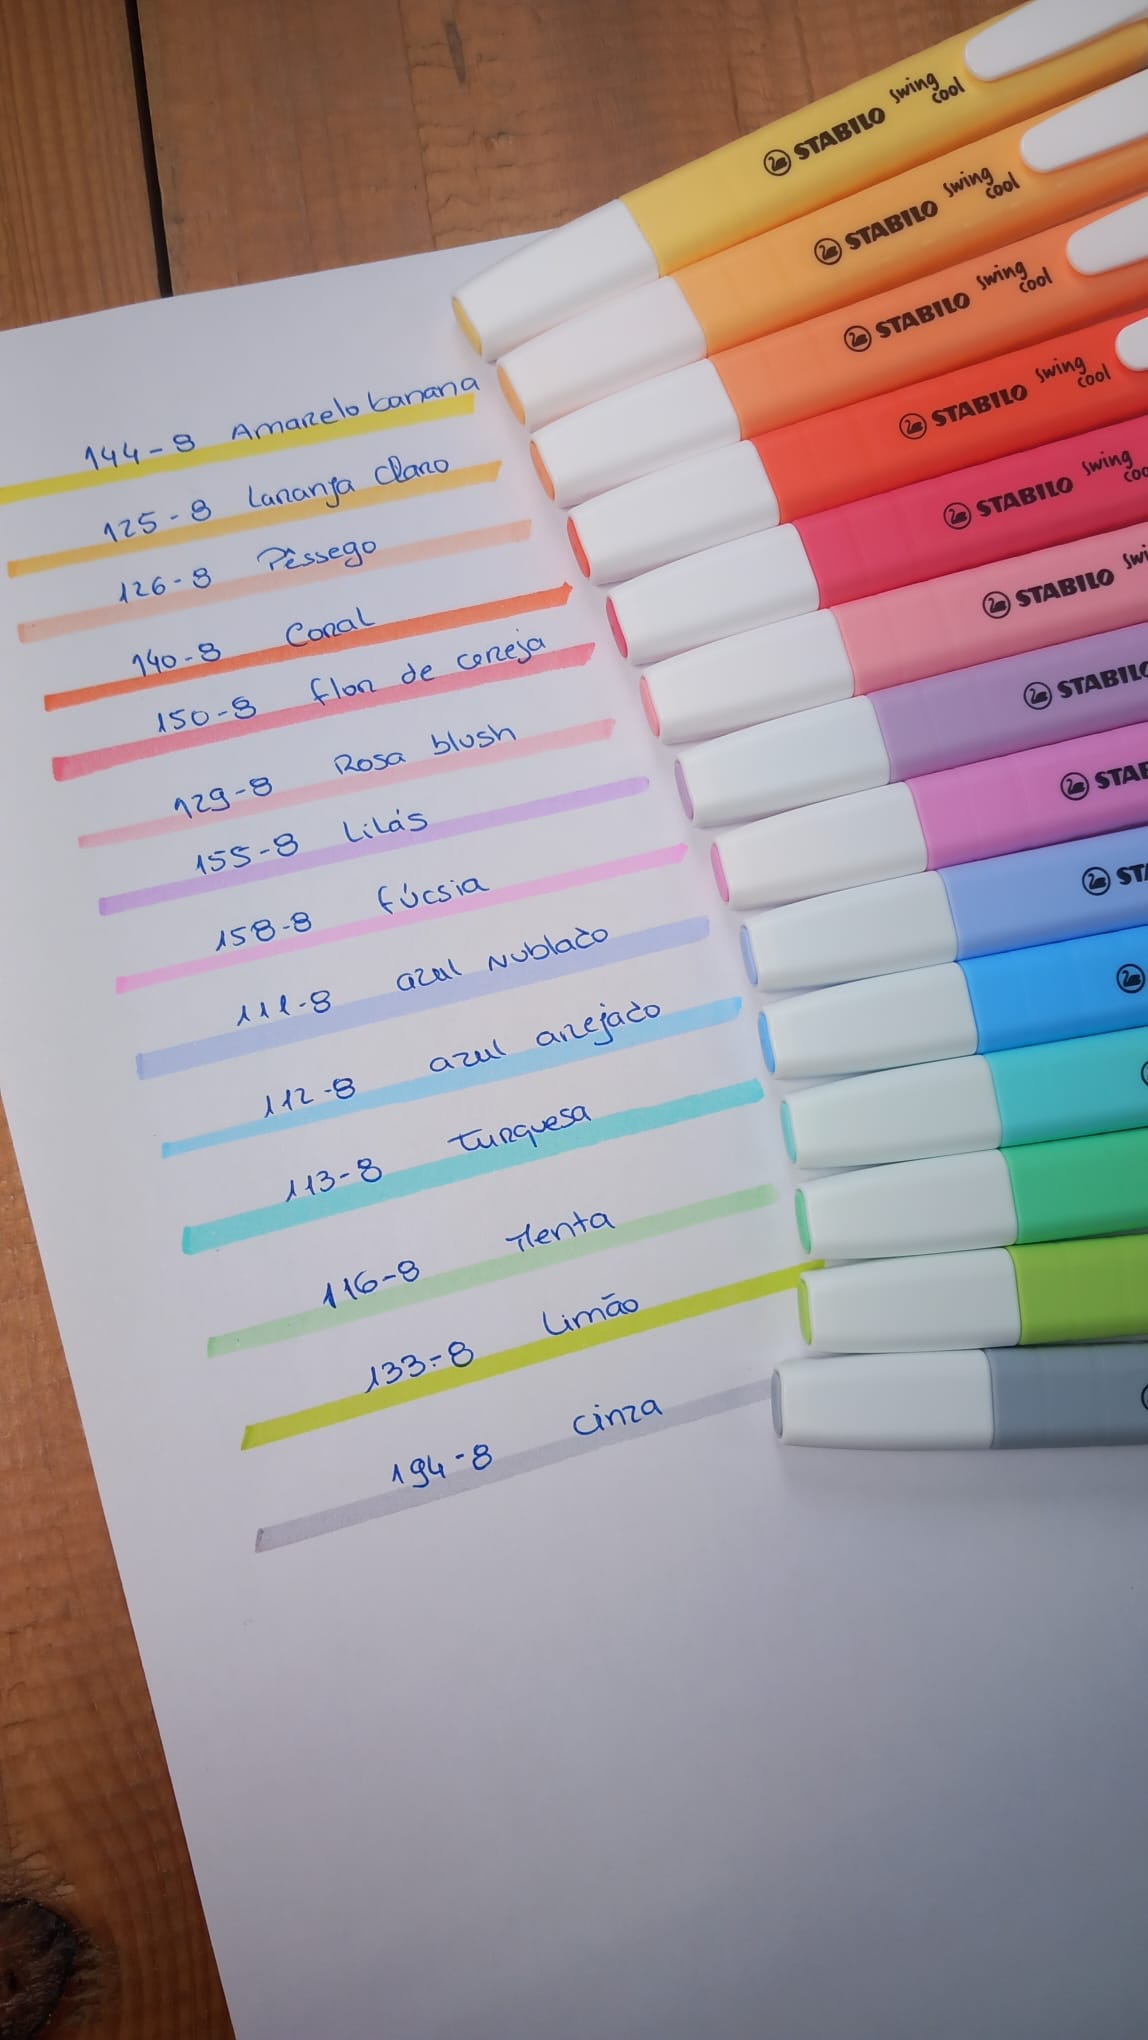 STABILO swing cool
STABILO swing cool
STABILO swing cool
STABILO swing cool
STABILO swing coo
STABILO swi
STABILO
STAB
ST
144-8 Amarelo banana
125-8 Laranja Claro
126-8 Pêssego
140-8 Coral
150-8 flor de cereja
129-8 Rosa blush
155-8 Lilás
158-8 fúcsia
111-8 azul nublado
112-8 azul arejado
113-8 turquesa
116-8 Menta
133-8 Limão
194-8 Cinza